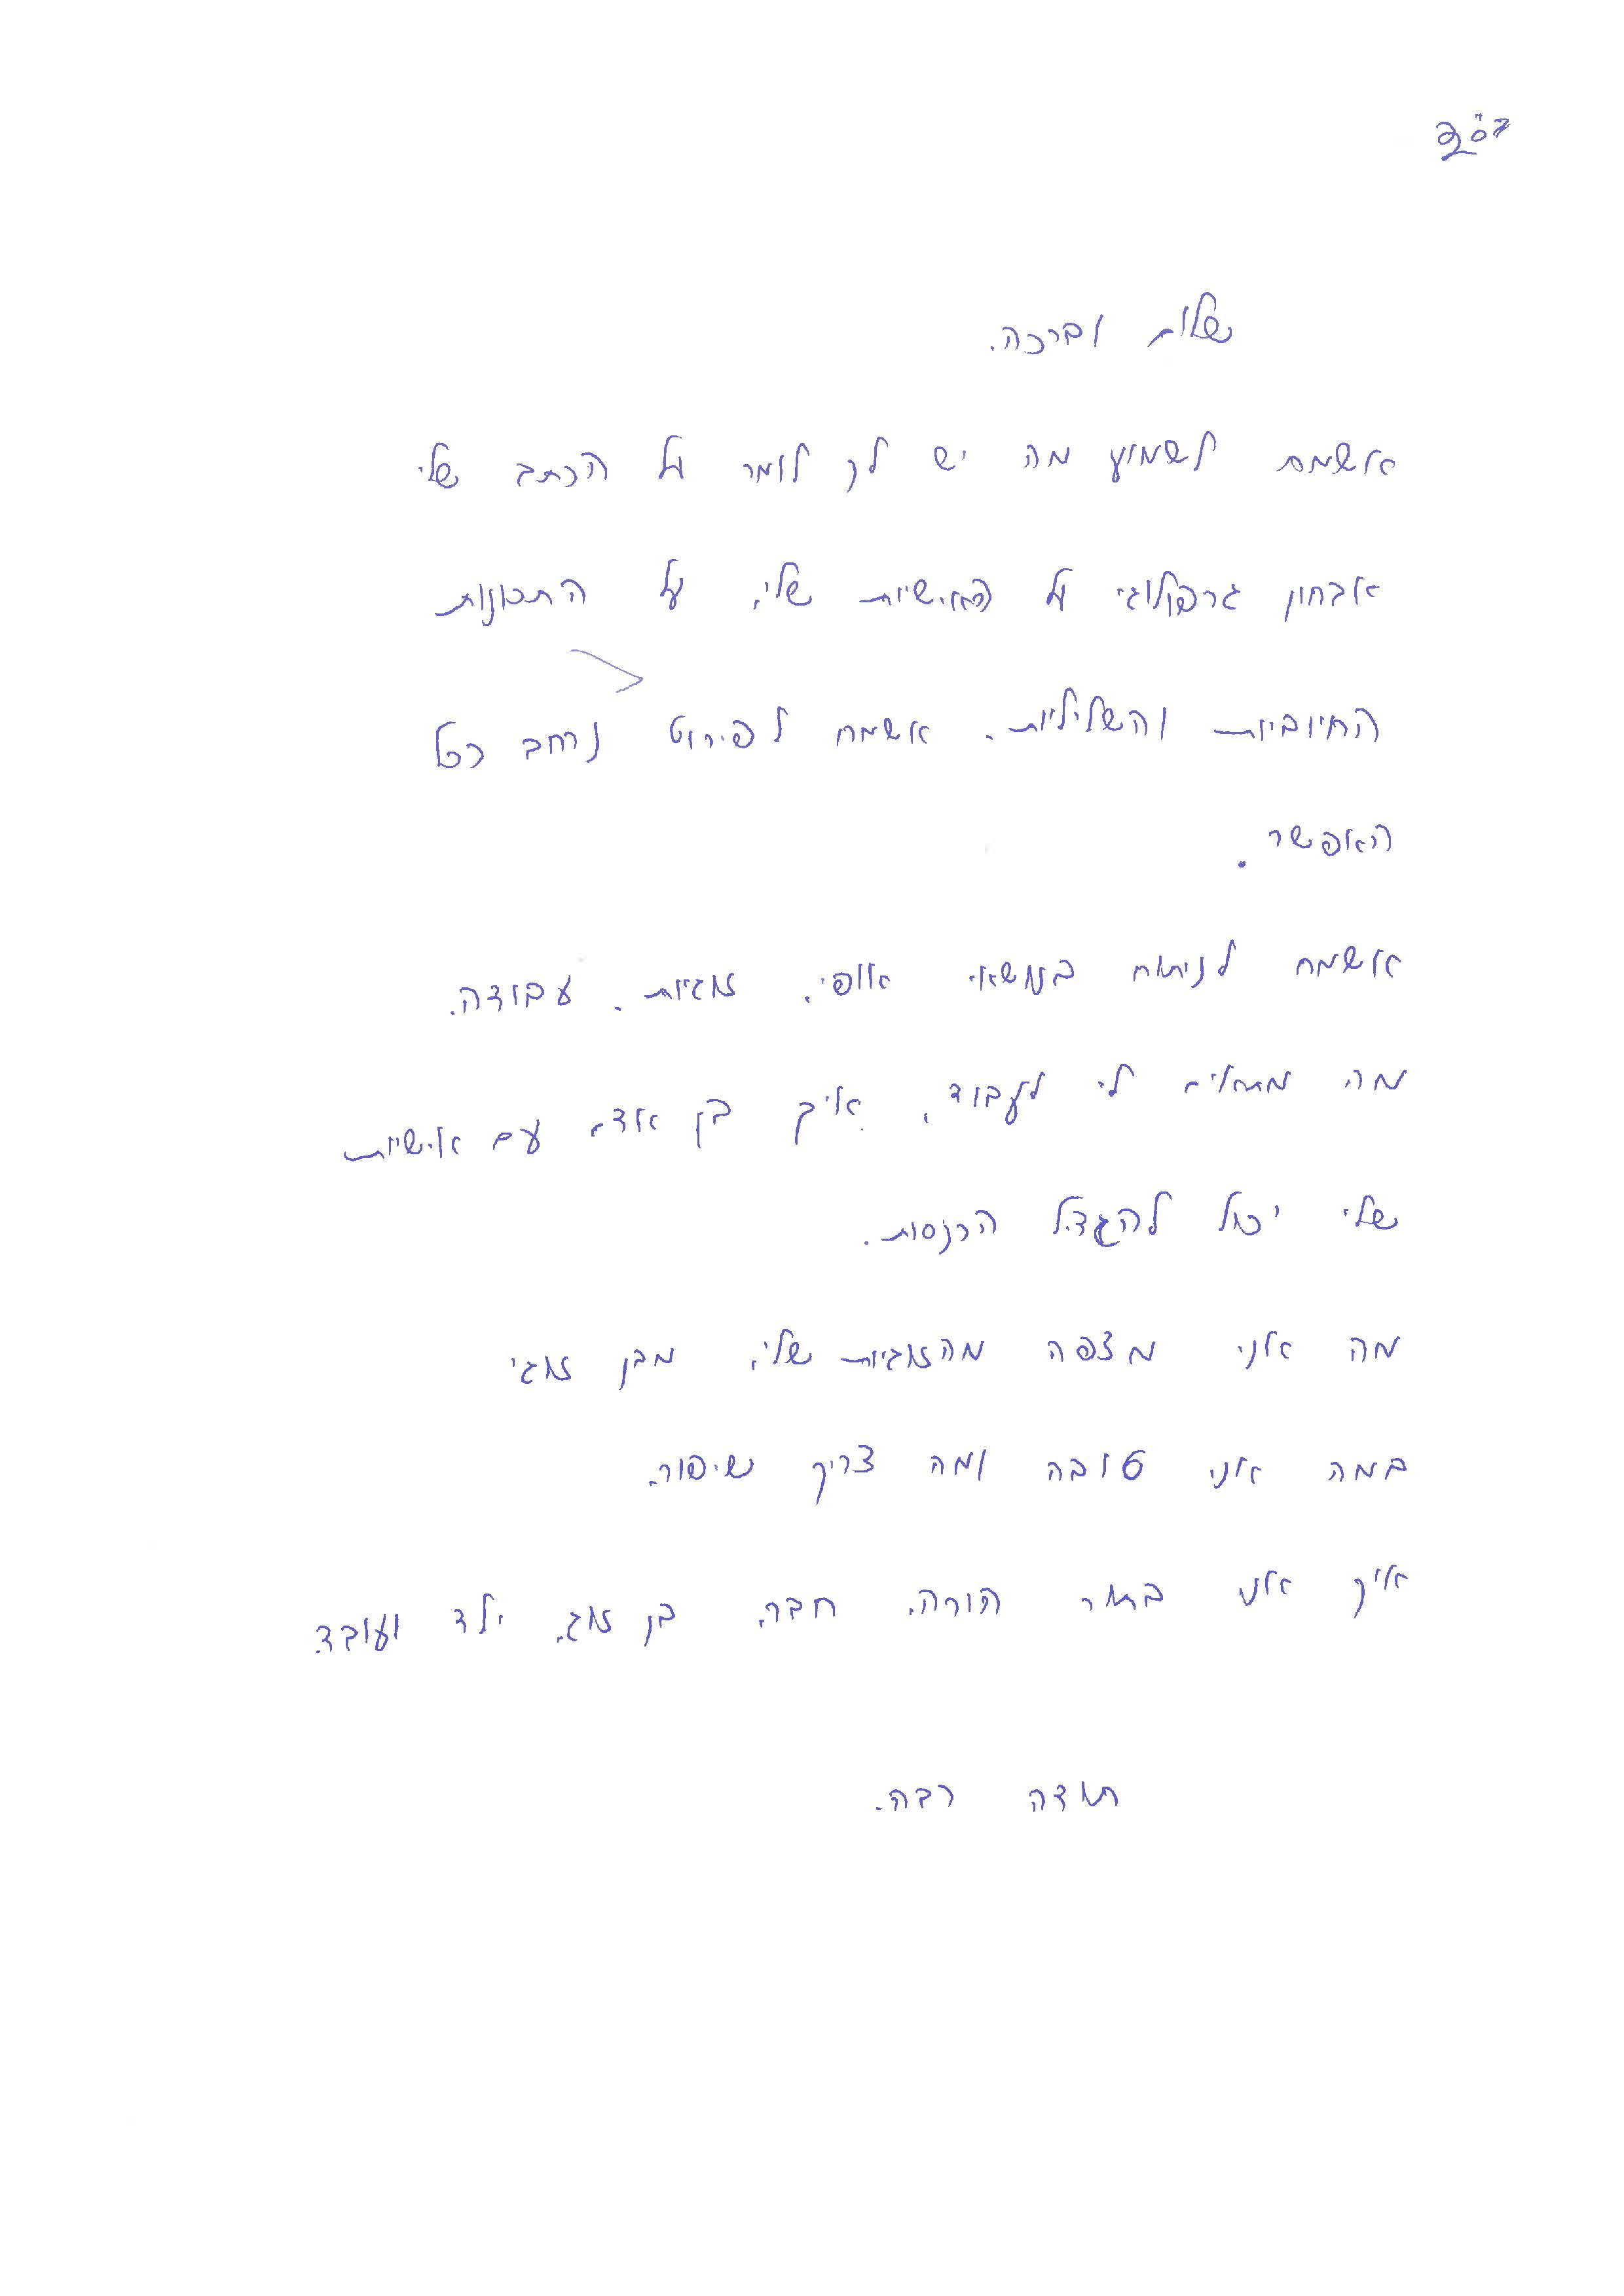 בס"ד
שלום וברכה.
אשמח לשמוע מה יש לך לומר על הכתב שלי
אבחון גרפולוגי על האישיות שלי, על התכונות
החיוביות והשליליות. אשמח לפירוט נרחב ככל
האפשר.
אשמח לניתוח בנושאי אופי, זוגיות, עבודה.
מה מתאים לי לעבוד, איך בן אדם עם אישיות
שלי יכול להגדיל הכנסות.
מה אני מצפה מהזוגיות שלי, מבן זוגי
במה אני טובה ומה צריך שיפור.
איך אני בתור הורה, חבר, בן זוג, ילד ועובד.
תודה רבה.